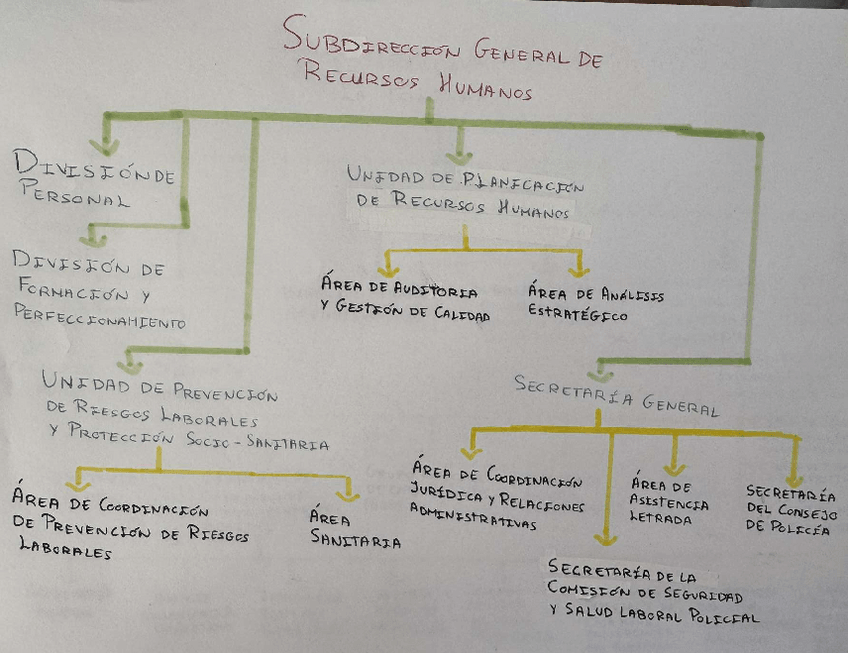 SUBDIRECCIÓN GENERAL DE
RECURSOS HUMANOS
DIVISIÓN DE
PERSONAL
UNIDAD DE PLANICACIÓN
DE RECURSOS HUMANOS
DIVISIÓN DE
FORMACIÓN Y
PERFECCIONAMIENTO
ÁREA DE AUDITORIA
Y GESTIÓN DE CALIDAD
ÁREA DE ANÁLISIS
ESTRATÉGICO
UNIDAD DE PREVENCIÓN
DE RIESGOS LABORALES
Y PROTECCIÓN SOCIO-SANITARIA
SECRETARÍA GENERAL
ÁREA DE COORDINACIÓN
DE PREVENCIÓN DE RIESGOS
LABORALES
ÁREA
SANITARIA
ÁREA DE COORDINACIÓN
JURÍDICA Y RELACIONES
ADMINISTRATIVAS
ÁREA DE
ASISTENCIA
LETRADA
SECRETARÍA
DEL CONSEJO
DE POLICÍA
SECRETARÍA DE LA
COMISIÓN DE SEGURIDAD
Y SALUD LABORAL POLICIAL